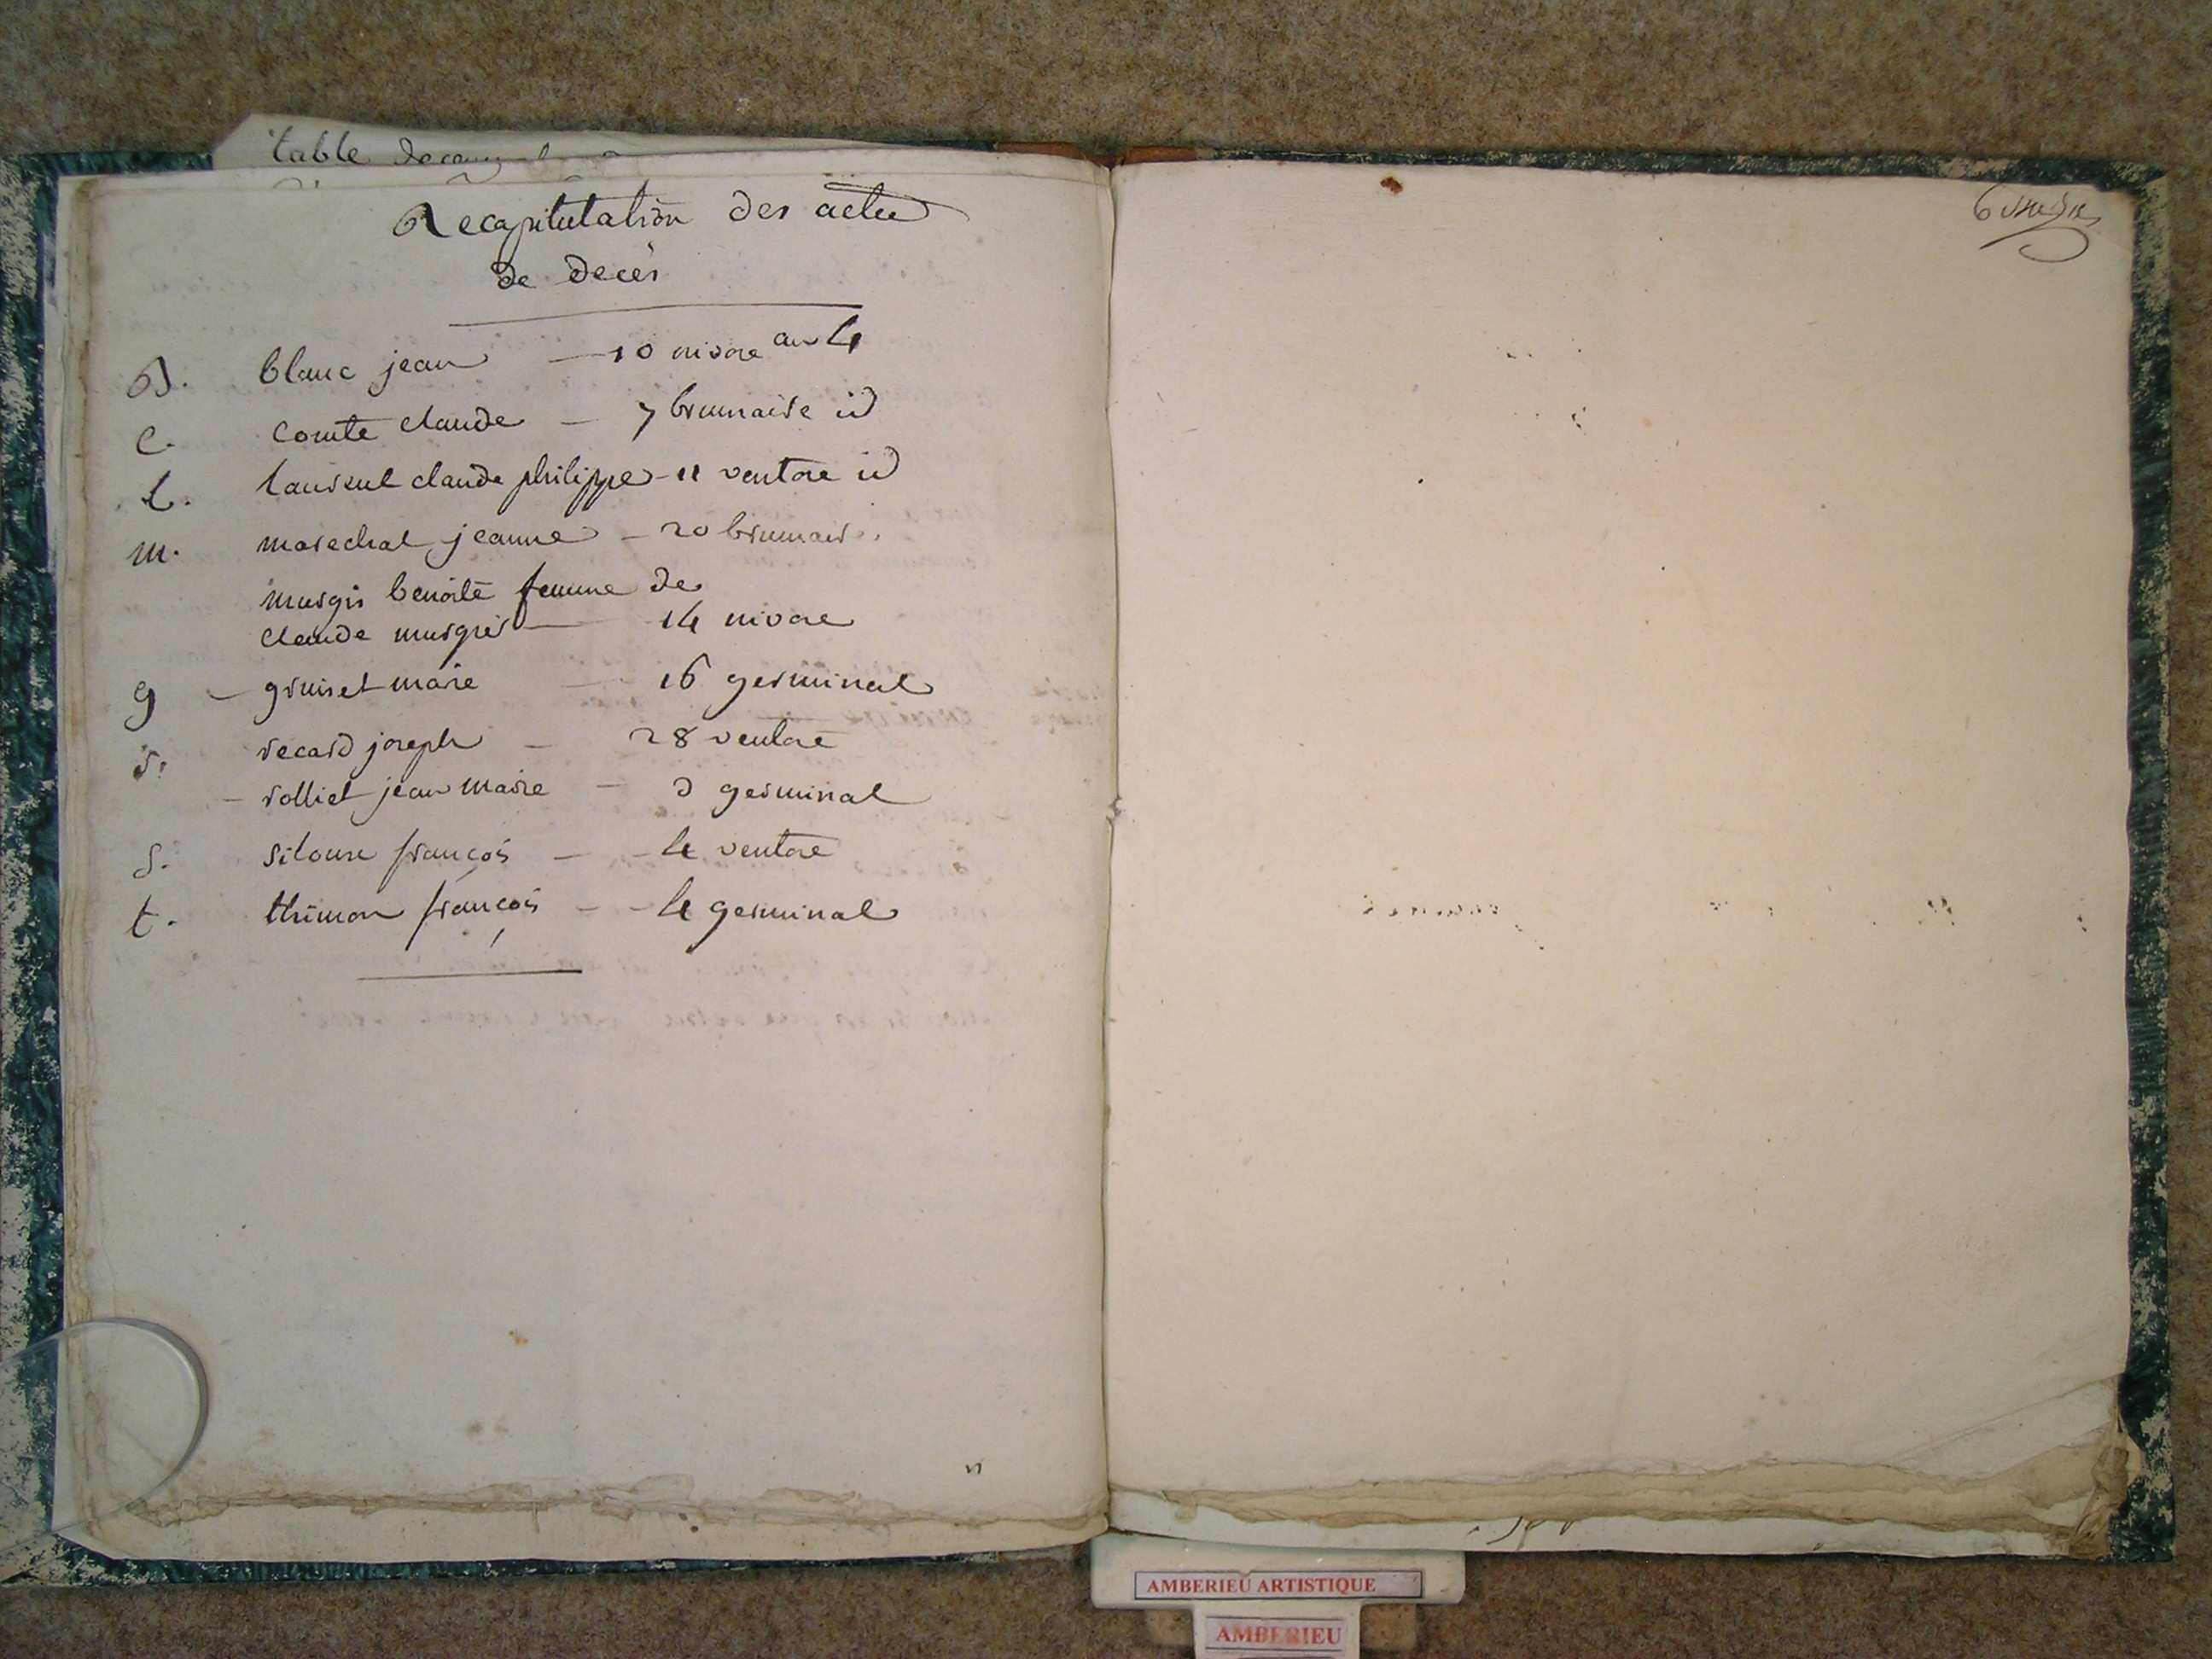 table
Recapitulation des actes
de decés
B. blanc jean — 10 nivose an 4
C. Comte claude — 7 brumaire id
L. claude philippe - 11 ventose id
m. marechal jeanne - 20 brumair
murgis benoite femme de
claude murgies — 14 nivose
g - gruiset marie — 16 germinal
r. recard joseph - 28 ventose
- rolliet jean marie - germinal
S. françois - - 4 ventose
t. thimon françois - - 4 germinal
AMBERIEU ARTISTIQUE
AMBERIEU